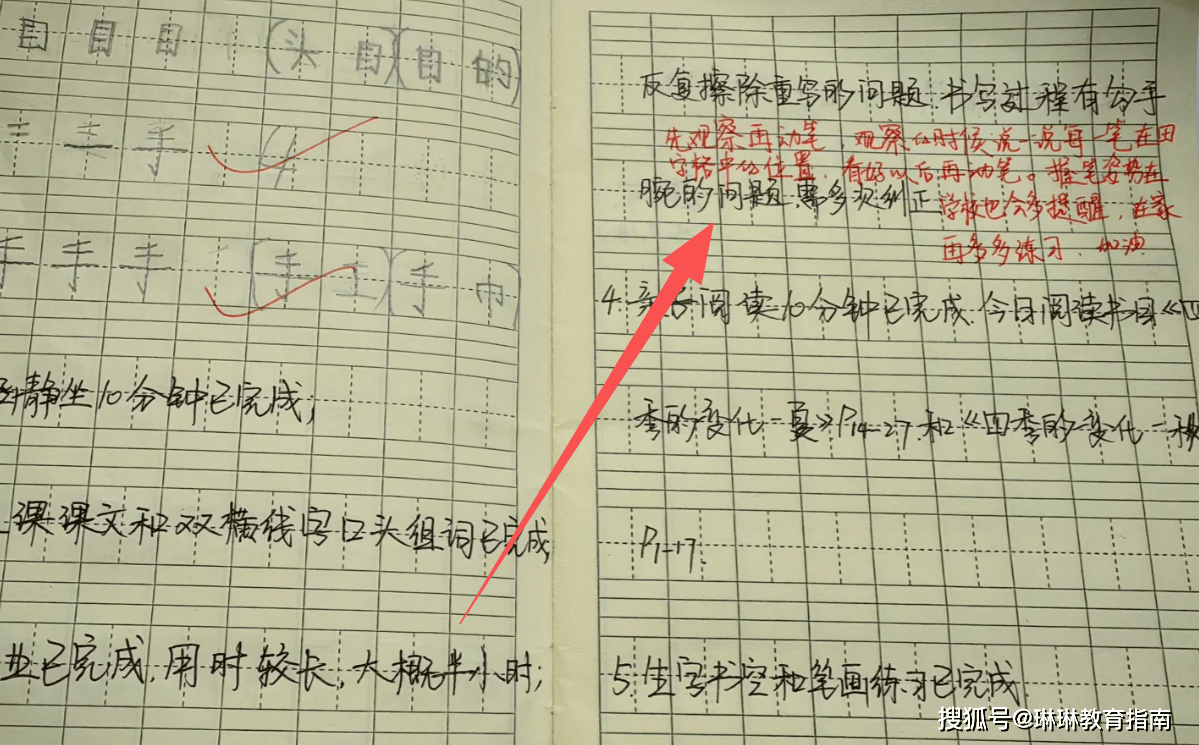 目 目 目 (头 目)(目 的)
手 手
手 手 手 (手 工)(手 巾)
静坐10分钟已完成;
课课文和双横线字口头组词已完成,
业已完成,用时较长,大概半小时;
反复擦除重写的问题,书写过程有勾手
先观察再动笔,观察的时候说一说每一笔在田
字格中的位置,看好以后再动笔。握笔姿势在
腕的问题,需多次纠正
学校也会多提醒,在家
再多多练习,加油
4.亲子阅读10分钟已完成,今日阅读书目《四
季的变化-夏》P14-27和《四季的变化-秋
P1-17.
5.生字书空和笔画练习已完成
搜狐号@琳琳教育指南